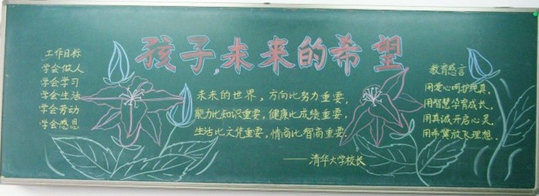 孩子,未来的希望
工作目标
学会做人
学会学习
学会生活
学会劳动
学会感恩
未来的世界,方向比努力重要,
能力比知识重要,健康比成绩重要,
生活比文凭重要,情商比智商重要。
——清华大学校长
教育感言
用爱心呵护纯真,
用智慧孕育成长,
用真诚开启心灵,
用希冀放飞理想.